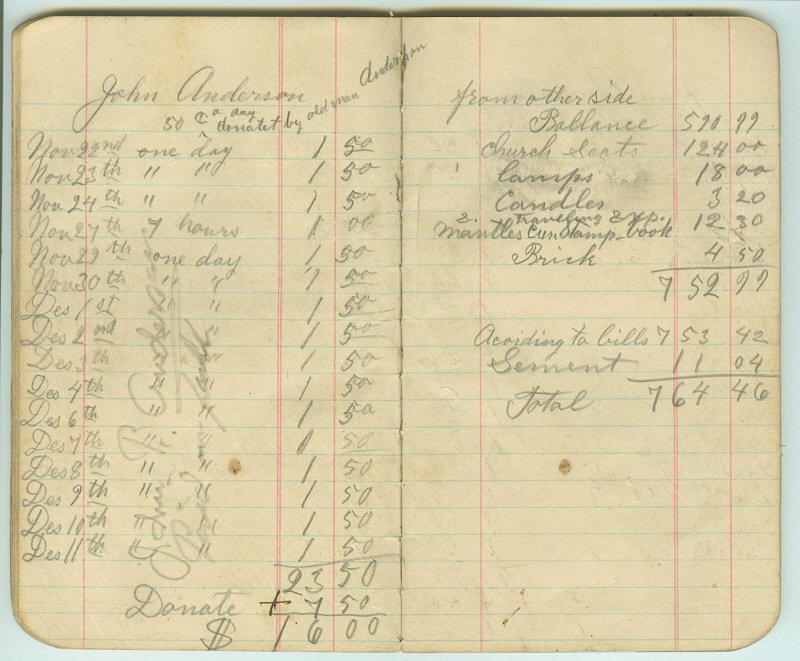 John Anderson
50 ¢ a day donatet by old man Anderson
Nov 22nd one day 1 50
Nov 23th " " 1 50
Nov 24th " " 1 50
Nov 27th 7 hours 1 00
Nov 29th one day 1 50
Nov 30th " " 1 50
Des 1st " " 1 50
Des 2nd " " 1 50
Des 3th " " 1 50
Des 4th " " 1 50
Des 6th " " 1 50
Des 7th " " 1 50
Des 8th " " 1 50
Des 9th " " 1 50
Des 10th " " 1 50
Des 11th " " 1 50
23 50
Donate + 7 50
$ 16 00
John P. Anderson
Paid in full
from other side
Ballance 590 99
Church Seats 124 00
Lamps 18 00
Candles 3 20
& Traveling Exp.
Mantles Stamp-book 12 30
Brick 4 50
752 99
Aciding to bills 753 42
Sement 11 04
Total 764 46